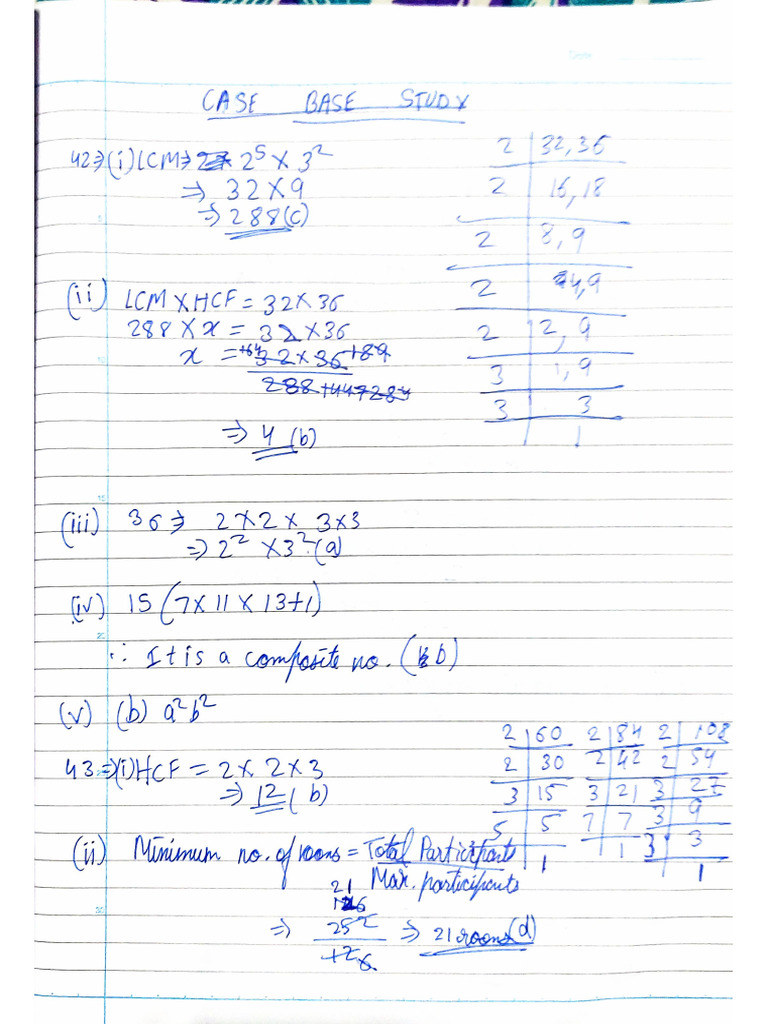 Date
CASE BASE STUDY
42⇒(i) LCM⇒ 2⁵ × 3²
⇒ 32 × 9
⇒ 288 (c)
2 | 32, 36
2 | 16, 18
2 | 8, 9
2 | 4, 9
2 | 2, 9
3 | 1, 9
3 | 3
1
(ii) LCM × HCF = 32 × 36
288 × x = 32 × 36
x = 32 × 36
288
⇒ 4 (b)
(iii) 36⇒ 2 × 2 × 3 × 3
⇒ 2² × 3² (a)
(iv) 15 (7 × 11 × 13 + 1)
∴ It is a composite no. (b)
(v) (b) a²b²
43⇒(i) HCF = 2 × 2 × 3
⇒ 12 (b)
2 | 60
2 | 30
3 | 15
5 | 5
1
2 | 84
2 | 42
3 | 21
7 | 7
1
2 | 108
2 | 54
3 | 27
3 | 9
3 | 3
1
(ii) Minimum no. of rooms = Total Participants
Max. participants
21
126
⇒ 252 ⇒ 21 rooms (d)
12